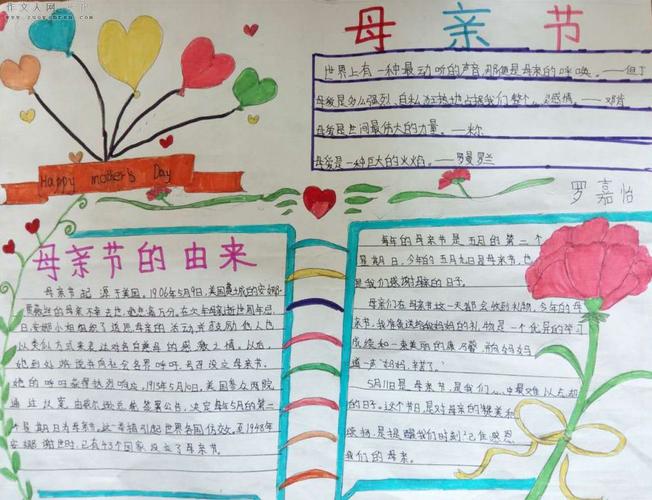 作文人网
www.zuowenren.com
母亲节
世界上有一种最动听的声音,那便是母亲的呼唤。——但丁
母爱是多么强烈、自私、狂热地占据我们整个心灵的感情。——邓肯
母爱是世间最伟大的力量。——米尔
母爱是一种巨大的火焰。——罗曼罗兰
Happy mother's Day
罗嘉怡
母亲节的由来
母亲节起源于美国。1906年5月9日,美国费城的安娜
的母亲不幸去世,她悲痛万分。在次年母亲逝世周年忌
日,安娜小姐组织了追思母亲的活动,并鼓励他人也
以类似方式来表达对各自慈母的感激之情。从此,
她到处游说并向社会各界呼吁,号召设立母亲节。
她的呼吁获得热烈响应。1913年5月10日,美国参众两院
通过议案,由威尔逊总统签署公书,决定每年5月的第二
个星期日为母亲节。这一举措引起世界各国仿效。至1948年
安娜谢世时,已有43个国家设立了母亲节。
每年的母亲节是五月的第二个
星期日,今年的五月九日是母亲节,也
是我们感谢母亲的日子。
母亲们在母亲节这一天都会收到礼物,今年的母
亲节,我准备送给我妈妈的礼物是一个优异的学习
成绩和一束美丽的康乃馨,向妈妈
道一声“妈妈,辛苦了。”
5月11日是母亲节,是我们心中最难以忘怀
的日子。这个节日,是对母亲的赞美和
颂扬,是提醒我们时刻记住感恩
我们的母亲。